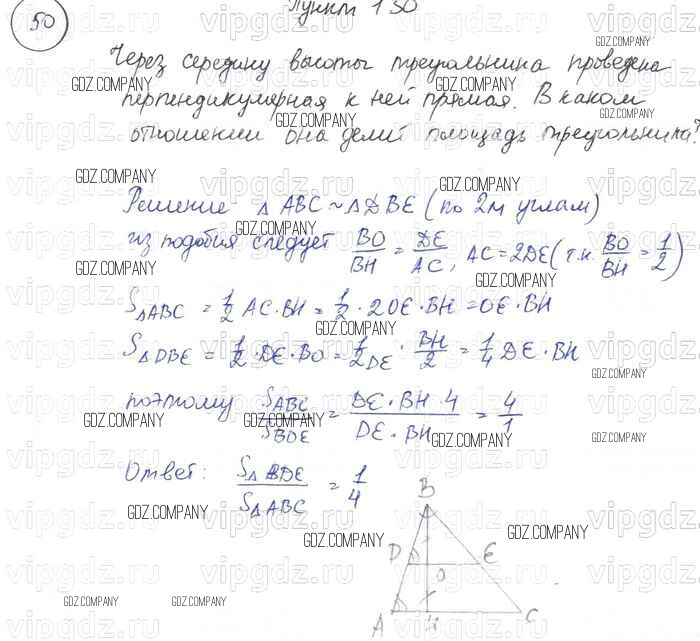 50 Пункт 130
Через середину высоты треугольника проведена
перпендикулярная к ней прямая. В каком
отношении она делит площадь треугольника?
Решение △ ABC ~ △ DBE (по 2м углам)
из подобия следует BO/BH = DE/AC, AC = 2DE (т.к. BO/BH = 1/2)
S△ABC = 1/2 AC · BH = 1/2 · 2DE · BH = DE · BH
S△DBE = 1/2 · DE · BO = 1/2 DE · BH/2 = 1/4 DE · BH
поэтому S ABC/S BDE = DE · BH · 4/DE · BH = 4/1
Ответ: S△BDE/S△ABC = 1/4
B
D E
O
A H C
GDZ.COMPANY
vipgdz.ru